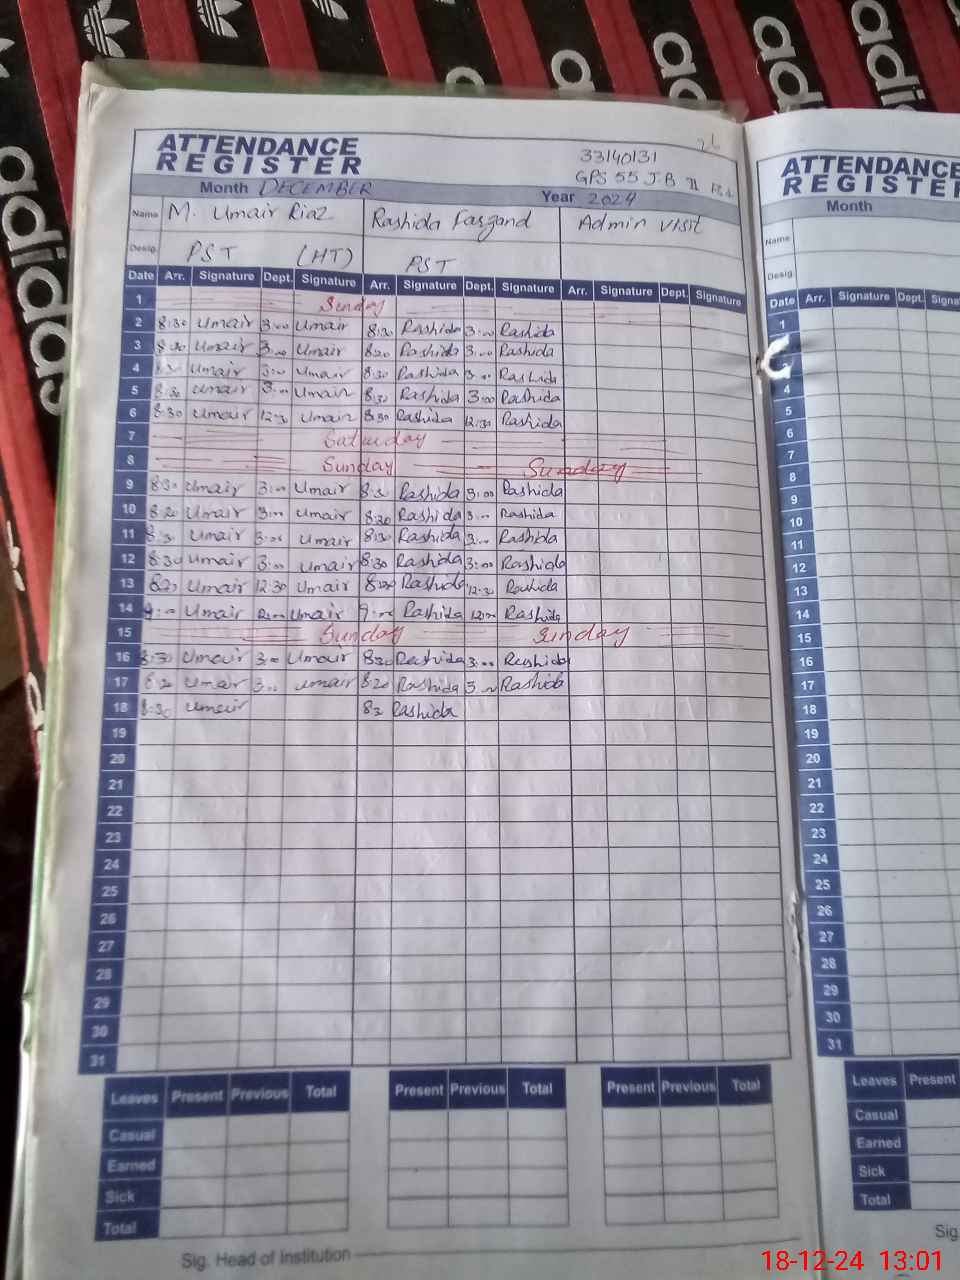 adidas
adidas
adidas
adidas
ATTENDANCE
REGISTER
26
33140131
GPS 55 J.B II
Month DECEMBER Year 2024
Name M. Umair Riaz Rashida Admin visit
Desig. PST (HT) PST
Date Arr. Signature Dept. Signature Arr. Signature Dept. Signature Arr. Signature Dept. Signature
1 Sunday
2 8:30 Umair 3:00 Umair 8:30 Rashida 3:00 Rashida
3 8:30 Umair 3:00 Umair 8:30 Rashida 3:00 Rashida
4 8:30 Umair 3:00 Umair 8:30 Rashida 3:00 Rashida
5 8:30 Umair 3:00 Umair 8:30 Rashida 3:00 Rashida
6 8:30 Umair 12:30 Umair 8:30 Rashida 12:30 Rashida
7 Saturday
8 Sunday Sunday
9 8:30 Umair 3:00 Umair 8:30 Rashida 3:00 Rashida
10 8:30 Umair 3:00 Umair 8:30 Rashida 3:00 Rashida
11 8:30 Umair 3:00 Umair 8:30 Rashida 3:00 Rashida
12 8:30 Umair 3:00 Umair 8:30 Rashida 3:00 Rashida
13 8:30 Umair 12:30 Umair 8:30 Rashida 12:30 Rashida
14 9:00 Umair 12:00 Umair 9:00 Rashida 12:00 Rashida
15 Sunday Sunday
16 8:30 Umair 3:00 Umair 8:30 Rashida 3:00 Rashida
17 8:30 Umair 3:00 Umair 8:30 Rashida 3:00 Rashida
18 8:30 Umair 8:30 Rashida
19
20
21
22
23
24
25
26
27
28
29
30
31
Leaves Present Previous Total Present Previous Total Present Previous Total
Casual
Earned
Sick
Total
Sig. Head of Institution
ATTENDANCE
REGISTER
Month
Name
Desig.
Date Arr. Signature Dept.
1
4
5
6
7
8
9
10
11
12
13
14
15
16
17
18
19
20
21
22
23
24
25
26
27
28
29
30
31
Leaves Present
Casual
Earned
Sick
Total
Sig.
18-12-24 13:01